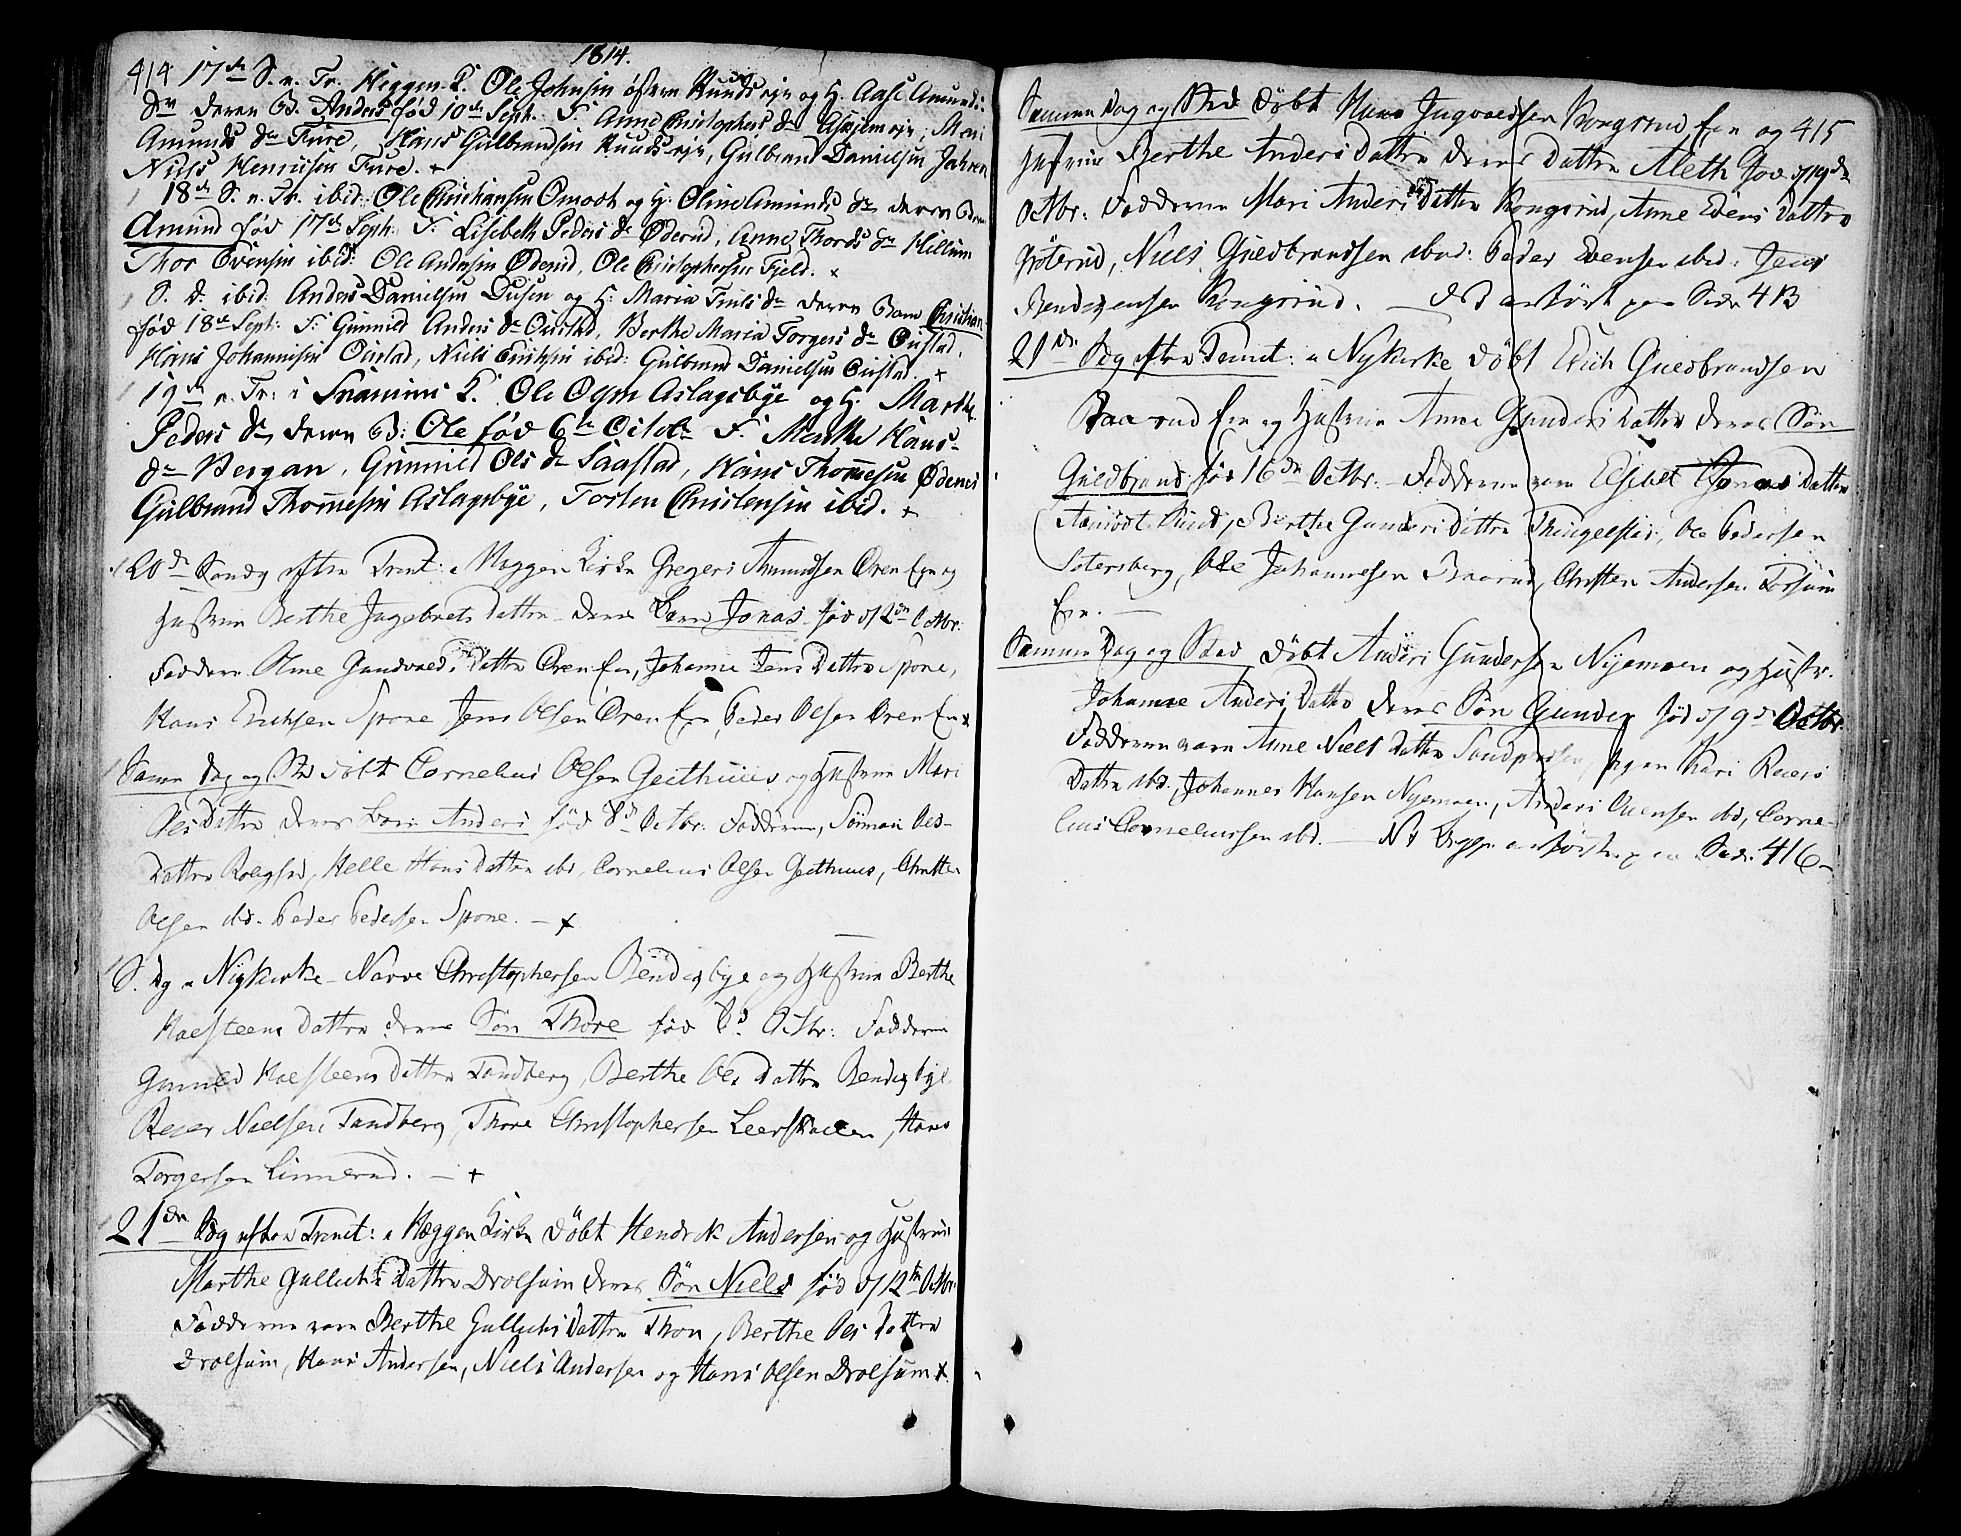 1814.
414 17de S. n. Tr. Heggen K. Ole Johnsen øfvern Ruuds eje og H. Aase Amunds
dr deres B. Anders fød 10de Sept. F. Anne Christophers dr Askjem eje, Mari
Amunds dr Fure, Hans Gulbrandsen Ruuds eje, Gulbrand Danielsen Jahren
Niels Henriksen Fure. +
18de S. n. Tr. ibid: Ole Christiansen Omoot og H: Oline Amunds dr deres Barn
Amund fød 17de Sept: F: Lisebeth Peders dr Øderud, Anne Thords dr Hillum
Thor Evensen ibid: Ole Andersen Øderud, Ole Christophersen Fjeld. +
S. D. ibid: Anders Danielsen og H: Maria dr deres Barn Christian
fød 18de Sept: F: Gunnild Anders dr Oustad, Berthe Maria Torgers dr Oustad,
Hans Johannesen Oustad, Niels ibid: Gulbrand Danielsen Oustad. +
19de n. Tr: i Snarums K. Ole Aslagsbye og H: Marthe
Peders dr deres B: Ole fød 6te Octobr F. Merthe Hans-
dr Bergan, Gunnild Ols dr Saastad, Hans Thomesen
Gulbrand Thomesen Aslagsbye, Torsten Christensen ibid. +
20de Søndg efter Trint: i Heggen Kirke Gregers Amundsen Øren Ejn og
Hustrue Berthe Ingebrets Datter deres Barn Jonas fød d/ 2den Octbr:
Faddern Anne Gundvalds Datter Øren Ejn, Johanne Jens Datter Spone,
Hans Erichsen Spone Jens Olsen Øren Ejn Peder Olsen Øren Ejn +
Samme Dag og Sted døbt Cornelius Olsen Geithuus og Hustrue Mari
Ols Datter deres Barn Anders fød 8de Octbr: Fadderne, Ols-
Datter, Helle Hans Datter ibd, Cornelius Olsen Geithuus, Christen
Olsen ibd. Peder Pedersen Spone. — +
S. Dg i Nykirke Narve Christophersen Bendixbye og Hustrue Berthe
Halsteens Datter deres Søn Thore fød 8de Octbr: Faddern
Gunnild Halsteens Datter Tandberg, Berthe Ols Datter Bendixbye
Reier Nielsen Tandberg, Thore Christophersen Leerskallen, Hans
Torgersen Linnerud. — +
21de Sdg efter Trint: i Heggen Kirke døbt Hendrik Andersen og Hustrue
Marthe Gulleiks Datter Drolsum deres Søn Niels fød d/ 12te Octbr:
Fadderne vare Berthe Gulleiks Datter Thon, Berthe Ols Datter
Drolsum, Hans Andersen, Niels Andersen og Hans Olsen Drolsum +.
Samme Dag og Sted døbt Hans Ingvoldsen Kongsrud Ejn og 415
Hustrue Berthe Anders Datter deres Datter Aleth fød d/ 19de
Octbr: Fadderne Mari Anders Datter Kongsrud, Anne Evens Datter
Grøterud, Niels Guldbrandsen ibid: Peder Evensen ibid: Jens
Bendixensen Kongsrud. — anført paa Side 413
21de Sdg efter Trinit: i Nykirke døbt Erich Guldbrandsen
Baarud Ejn og Hustrue Anne Gunders Datter deres Søn
Guldbrand, fød 16de Octbr: Fadderne vare Elsebet Jonas Datter
Berthe Gunders Datter Thingelstad, Ole Pedersen
Sotersberg, Ole Johannesen Baarud, Christen Andersen
Ejn. —
Samme Dag og Sted døbt Anders Gundersen Nyemoen og Hustr.
Johanne Anders Datter deres Søn Gunder fød d/ 9de Octbr:
Fadderne vare Anne Niels Datter, Kari Reiers
Datter ibd, Johannes Hansen Nyemoen, Anders Ovensen ibd, Corne-
lius Corneliussen ibd. — anført paa Side 416 —